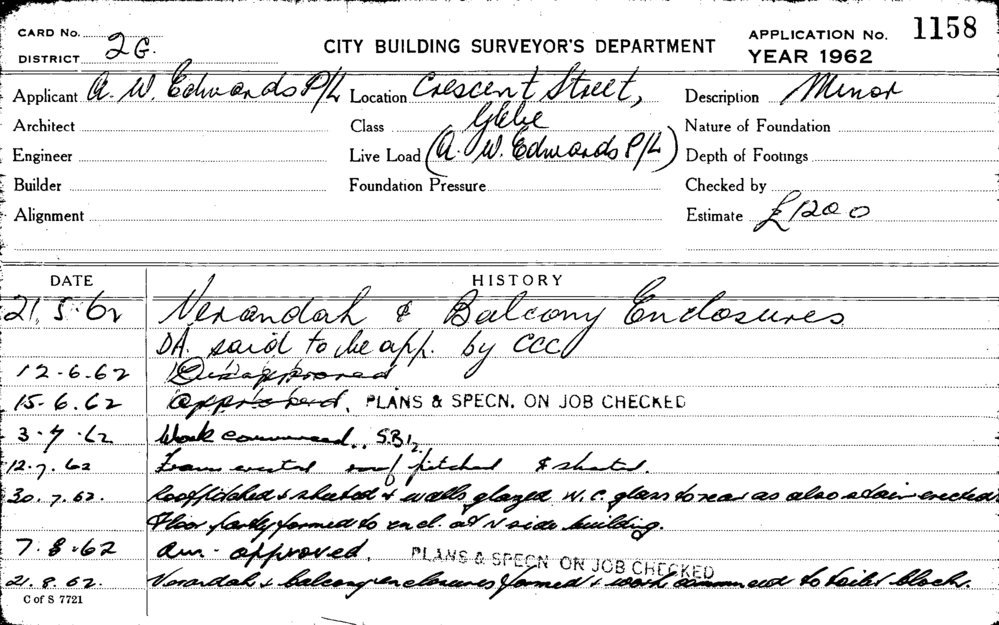 CARD No.
DISTRICT 2G.
CITY BUILDING SURVEYOR'S DEPARTMENT
APPLICATION No. 1158
YEAR 1962
Applicant A. W. Edwards P/L Location Crescent Street, Description Minor
Architect Class Glebe Nature of Foundation
Engineer Live Load (A. W. Edwards P/L) Depth of Footings
Builder Foundation Pressure Checked by
Alignment Estimate £1200
DATE HISTORY
21.5.62 Verandah & Balcony Enclosures
DA. said to be app. by CCC
12-6-62 Disapproved
15.6.62 approved. PLANS & SPECN. ON JOB CHECKED
3-7-62 Work commenced. S.B.
12.7.62 Frame erected roof pitched & sheeted.
30.7.62. Roof pitched & sheeted & walls glazed W.C. glass to rear as also stair erected
Floor partly formed to encl. at N side building.
7.8.62 Am. approved. PLANS & SPECN ON JOB CHECKED
21.8.62. Verandah & balcony enclosures formed & work commenced to toilet block.
C of S 7721